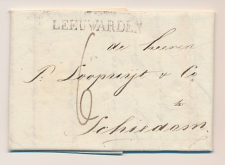 LEEUWARDEN
de heeren
P. Loopuyt & Co
6
te
Schiedam.